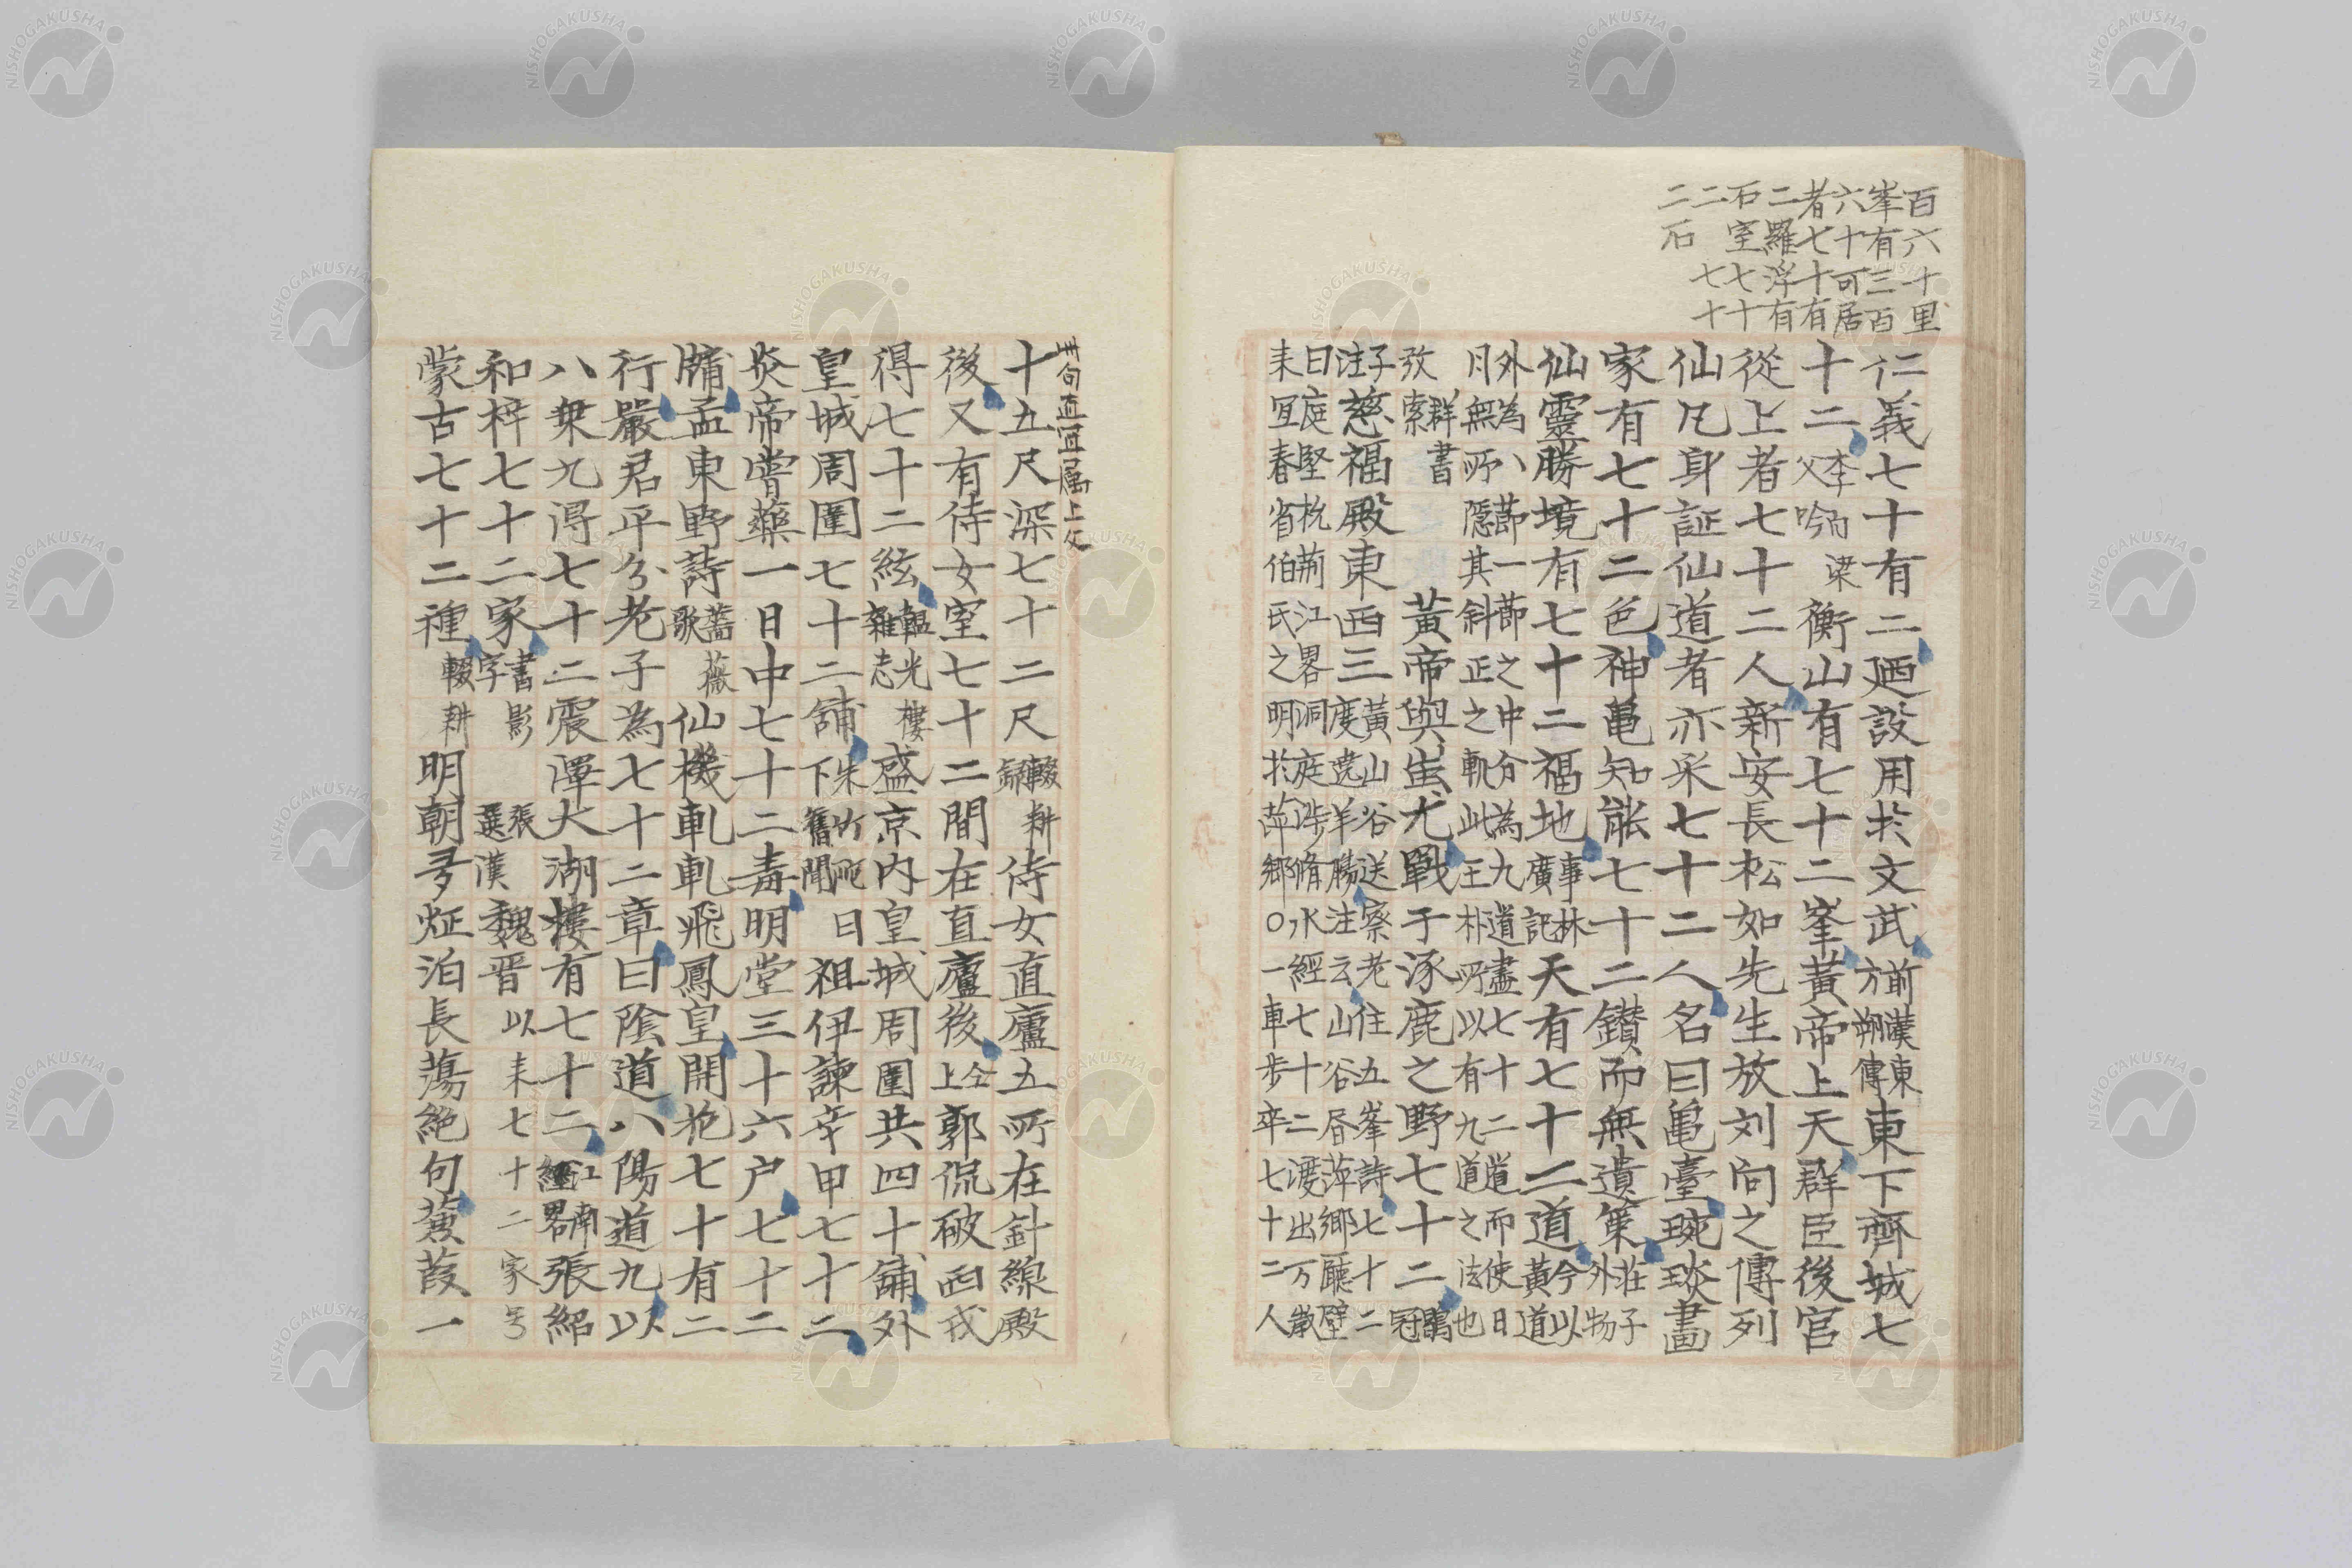 百六十里
峯有三百
六十可居
者七十有
二羅浮有
石室七十
二七十
二石
仁義七十有二廼設用於文武前漢東方朔傳東下齊城七
十二李白梁父吟衡山有七十二峯黃帝上天群臣後宮
從上者七十二人新安長松如先生放刘向之傳列
仙凡身証仙道者亦采七十二人名曰亀臺琬琰畫
家有七十二色神亀知能七十二鑚而無遺筴莊子外物
仙靈勝境有七十二福地事林廣記天有七十二道今以黃道
外為八節一節之中分為九道盡七十二道而使日
月無所隱其斜正之軌此王朴所以有九道之法也
群書攷索黃帝與蚩尤戰于涿鹿之野七十二鶡冠
子注慈福殿東西三黃山谷送察老住五峯詩七十二度遶羊膓注云山谷昏萍鄉廳壁
曰庭堅杭荊江畧洞庭涉脩水經七十二渡出万嵗
耒宜春省伯氏之明於萍鄉〇一車步卒七十二人
廿句直宜属上文
十五尺深七十二尺輟耕錄侍女直廬五所在針線殿
後又有侍女室七十二間在直廬後仝上郭侃破西戎
得七十二絃韞光樓雜志盛京内皇城周圍共四十舗外
皇城周圍七十二舗朱竹咜日下舊聞祖伊諫辛甲七十二
炎帝嘗藥一日中七十二毒明堂三十六户七十二
牖孟東野詩薔薇歌仙機軋軋飛鳳皇開抱七十有二
行嚴君平分老子為七十二章曰陰道八陽道九以
八乗九得七十二震澤大湖樓有七十二江南經畧張紹
和梓七十二家書影字張漢選魏晋以耒七十二家号
蒙古七十二種輟耕明朝寻炡泊長蕩絶句蒹葭一